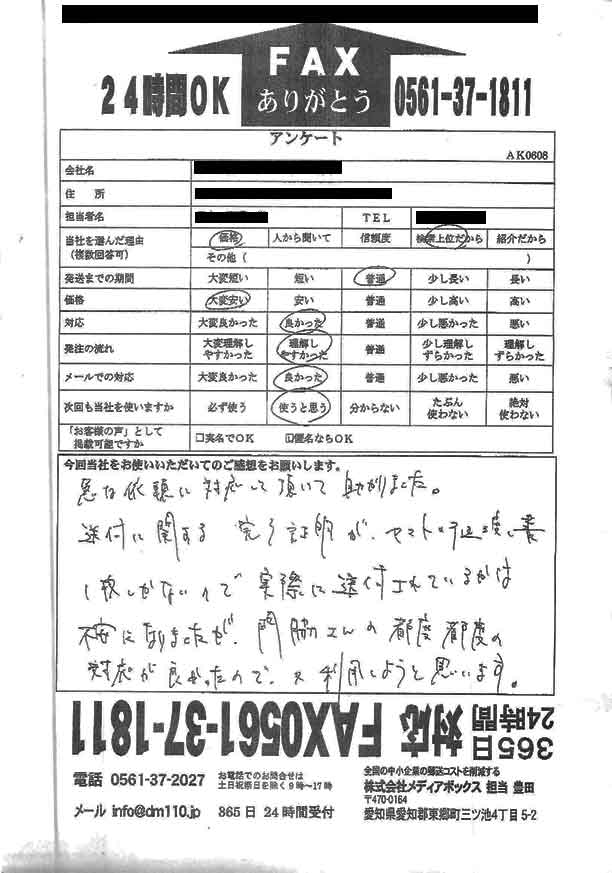 FAX
ありがとう
24時間OK
0561-37-1811
アンケート
AK0608
会社名
住 所
担当者名 TEL
当社を選んだ理由(複数回答可) 価格 人から聞いて 信頼度 検索上位だから 紹介だから
その他( )
発送までの期間 大変短い 短い 普通 少し長い 長い
価格 大変安い 安い 普通 少し高い 高い
対応 大変良かった 良かった 普通 少し悪かった 悪い
発注の流れ 大変理解しやすかった 理解しやすかった 普通 少し理解しずらかった 理解しずらかった
メールでの対応 大変良かった 良かった 普通 少し悪かった 悪い
次回も当社を使いますか 必ず使う 使うと思う 分からない たぶん使わない 絶対使わない
「お客様の声」として掲載可能ですか □実名でOK □匿名ならOK
今回当社をお使いいただいてのご感想をお願いします。
急な依頼に対応して頂いて助かりました。
送付に関する完了証明が、ヤマトの引渡し書
1枚しかないので実際に送付されているかは
不安になりましたが、門脇さんの都度都度の
対応が良かったので、又利用しようと思います。
365日24時間対応 FAX0561-37-1811
電話 0561-37-2027
お電話でのお問合せは
土日祝祭日を除く9時~17時
メール info@dm110.jp 365日24時間受付
全国の中小企業の郵送コストを削減する
株式会社メディアボックス 担当 豊田
〒470-0164
愛知県愛知郡東郷町三ツ池4丁目5-2